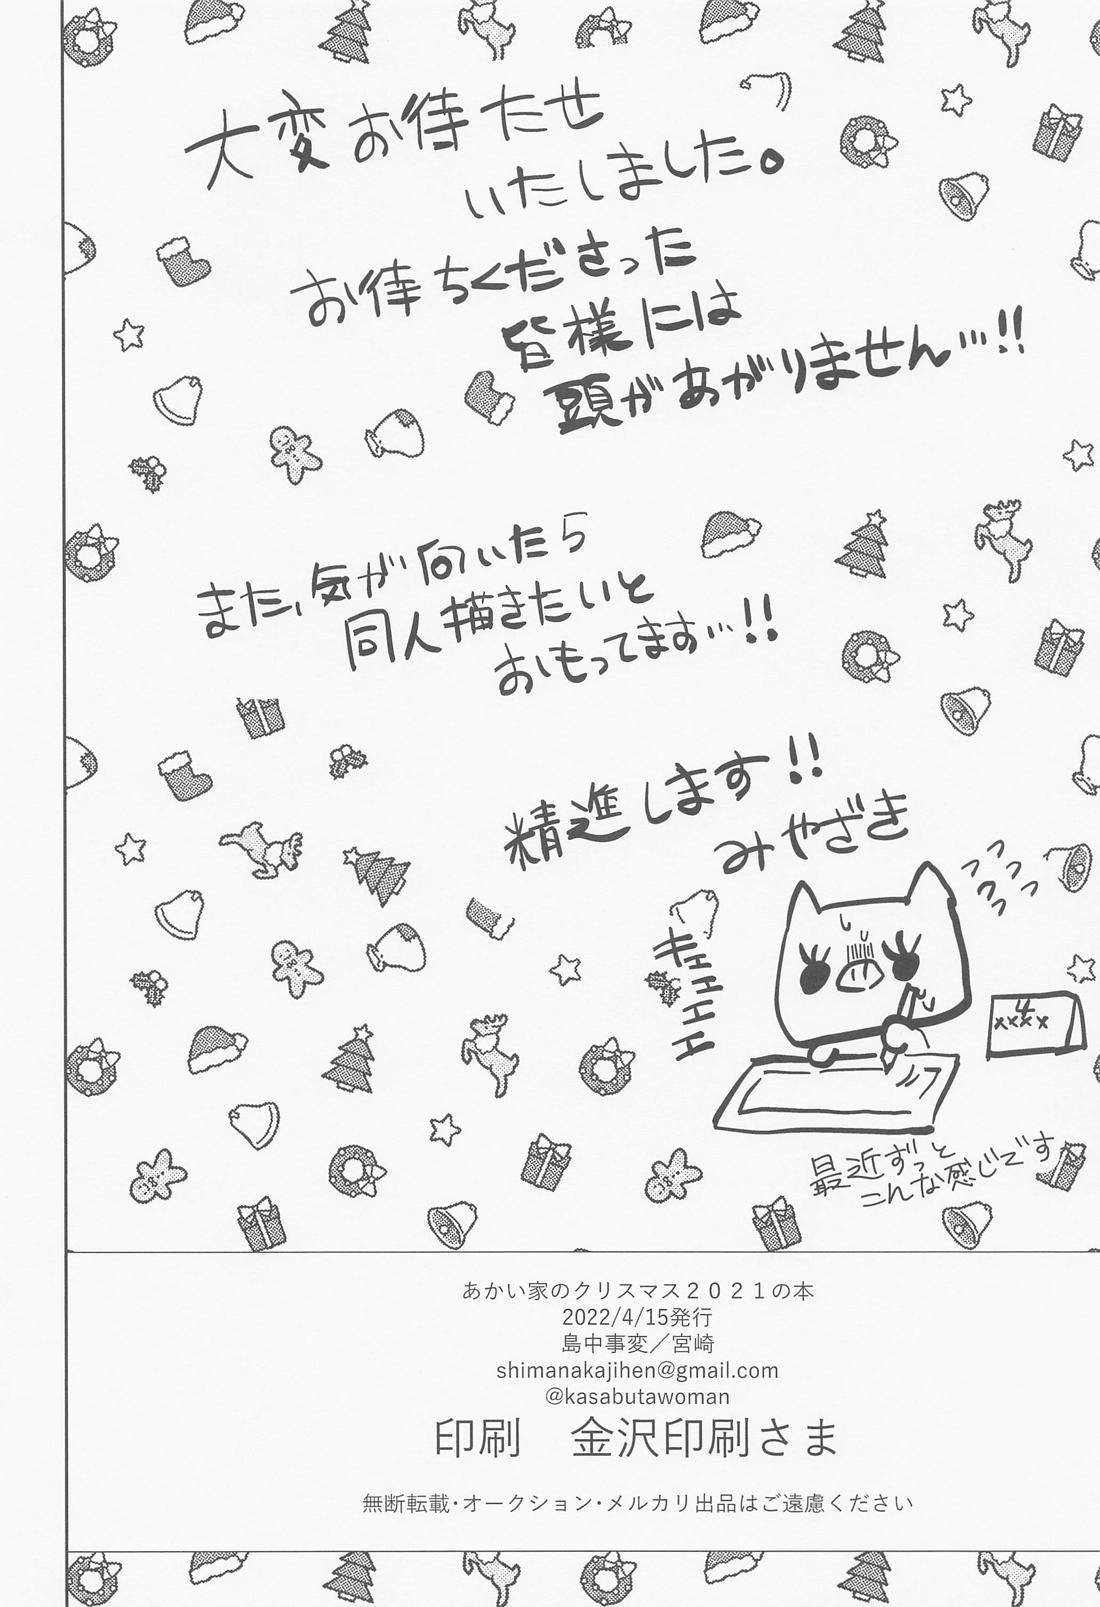 大変お待たせ
いたしました。
お待ちくださった
皆様には
頭があがりません…!!
また、気が向いたら
同人描きたいと
おもってます…!!
精進します!!
みやざき
キェェェェェ
4
××××
最近ずっと
こんな感じです
あかい家のクリスマス２０２１の本
2022/4/15発行
島中事変／宮崎
shimanakajihen@gmail.com
@kasabutawoman
印刷　金沢印刷さま
無断転載・オークション・メルカリ出品はご遠慮ください